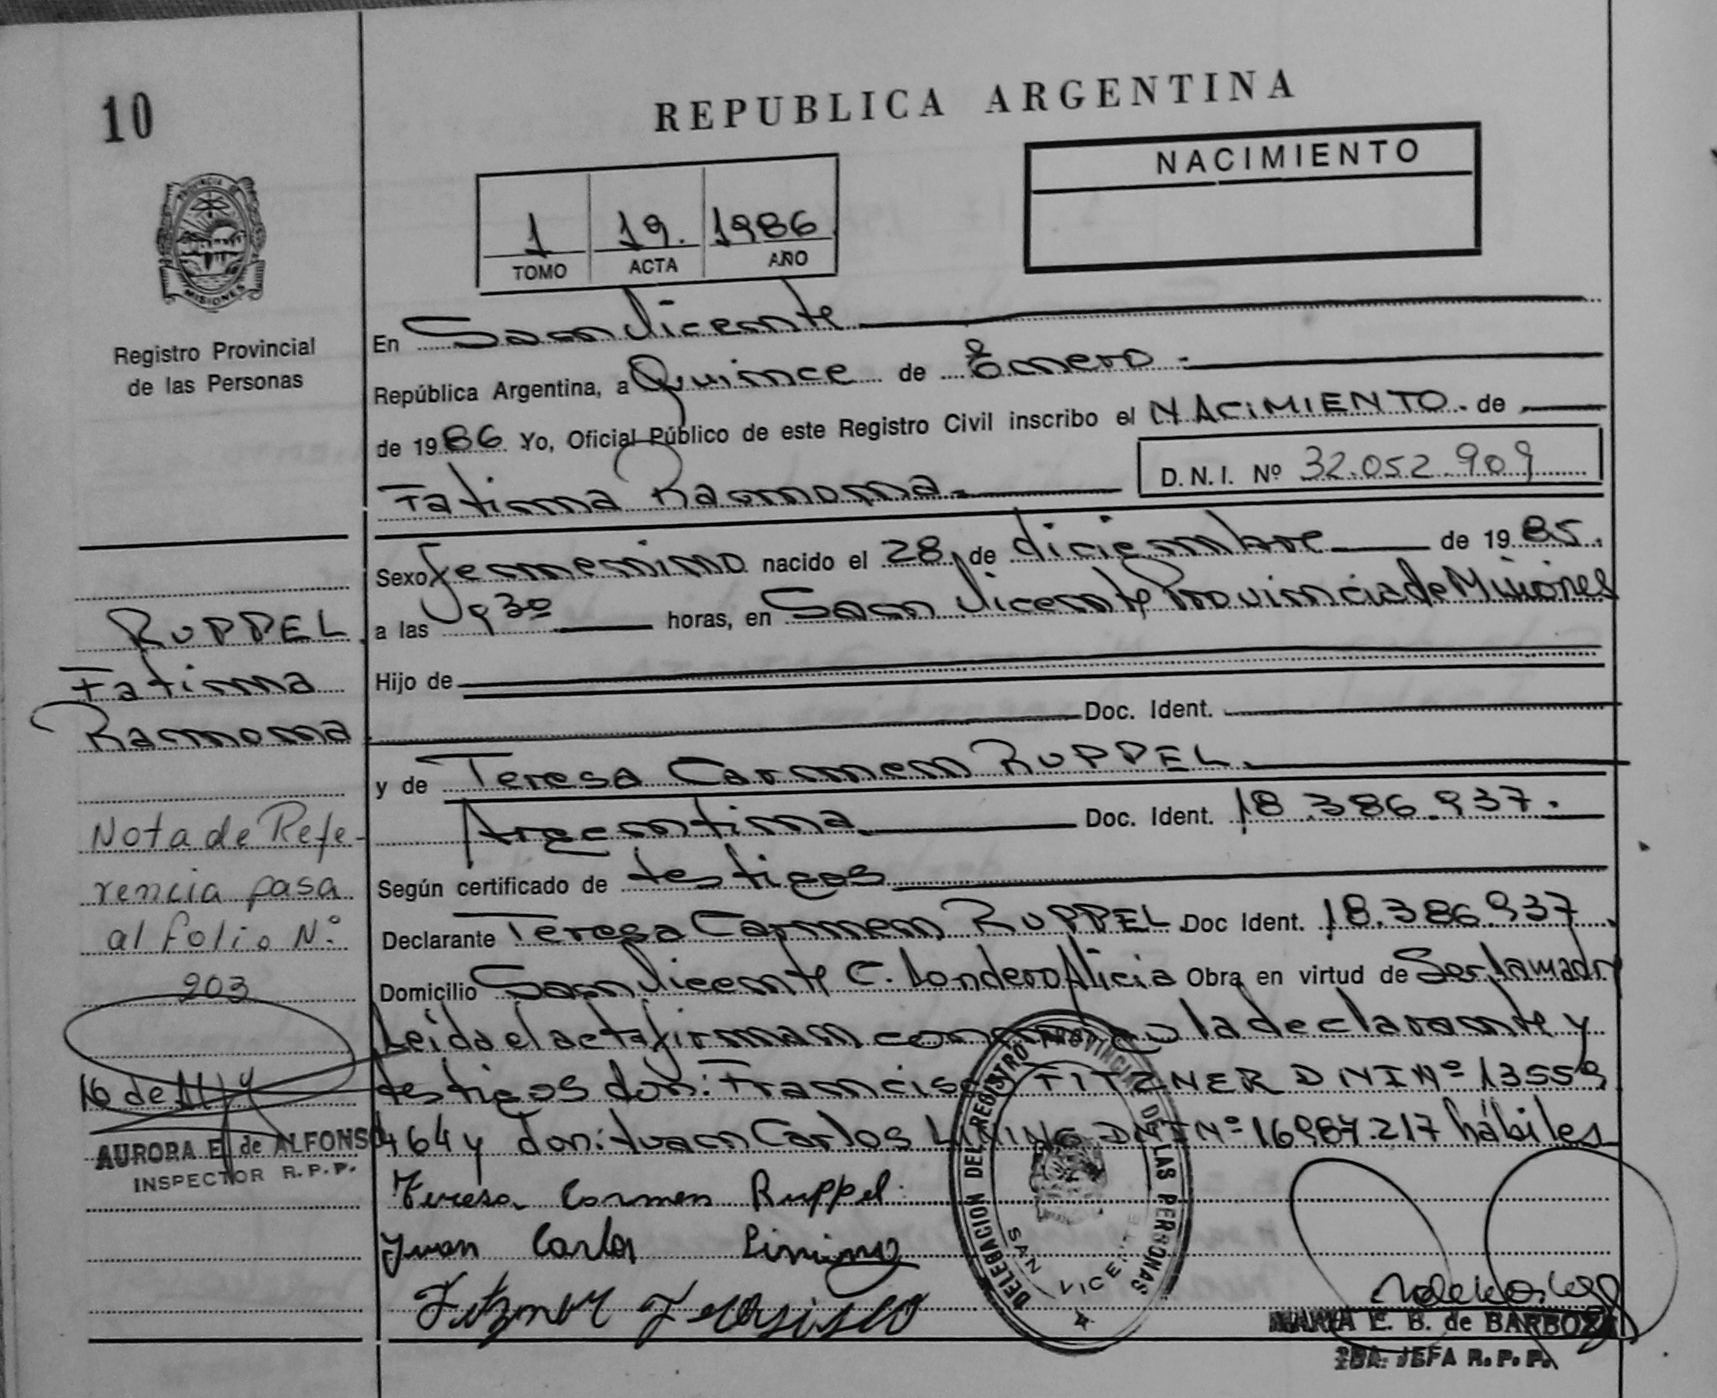 10
REPUBLICA ARGENTINA
NACIMIENTO
1 19. 1986
TOMO ACTA AÑO
PROVINCIA DE MISIONES
Registro Provincial
de las Personas
En San Vicente
República Argentina, a Quince de Enero.-
de 1986 Yo, Oficial Público de este Registro Civil inscribo el NACIMIENTO. de
Fatima Ramona.
D.N.I. Nº 32.052.909
Sexo femenino nacido el 28, de diciembre de 1985.
a las 9 30 horas, en San Vicente Provincia de Misiones
Hijo de
Doc. Ident.
y de Teresa Carmen RUPPEL.
Argentina Doc. Ident. 18.386.937.
Según certificado de testigos
Declarante Teresa Carmen RUPPEL. Doc Ident. 18.386.937.
Domicilio San Vicente C. Londero Alicia Obra en virtud de Ser la madre
Leida el acta firman conmigo la declarante y
testigos don: Francisco FITZNER DNI Nº 13559
464 y don: Juan Carlos LINING DNI Nº 16987.217 hábiles
Teresa Carmen Ruppel.
Juan Carlos Lining
Fitzner
RUPPEL
Fatima
Ramona
Nota de Refe-
rencia pasa
al folio Nº
203
16 de
AURORA E. de ALFONSO
INSPECTOR R.P.P.
DELEGACION DEL REGISTRO PROVINCIAL DE LAS PERSONAS
SAN VICENTE
MARIA E. B. de BARBOZA
2DA. JEFA R.P.P.